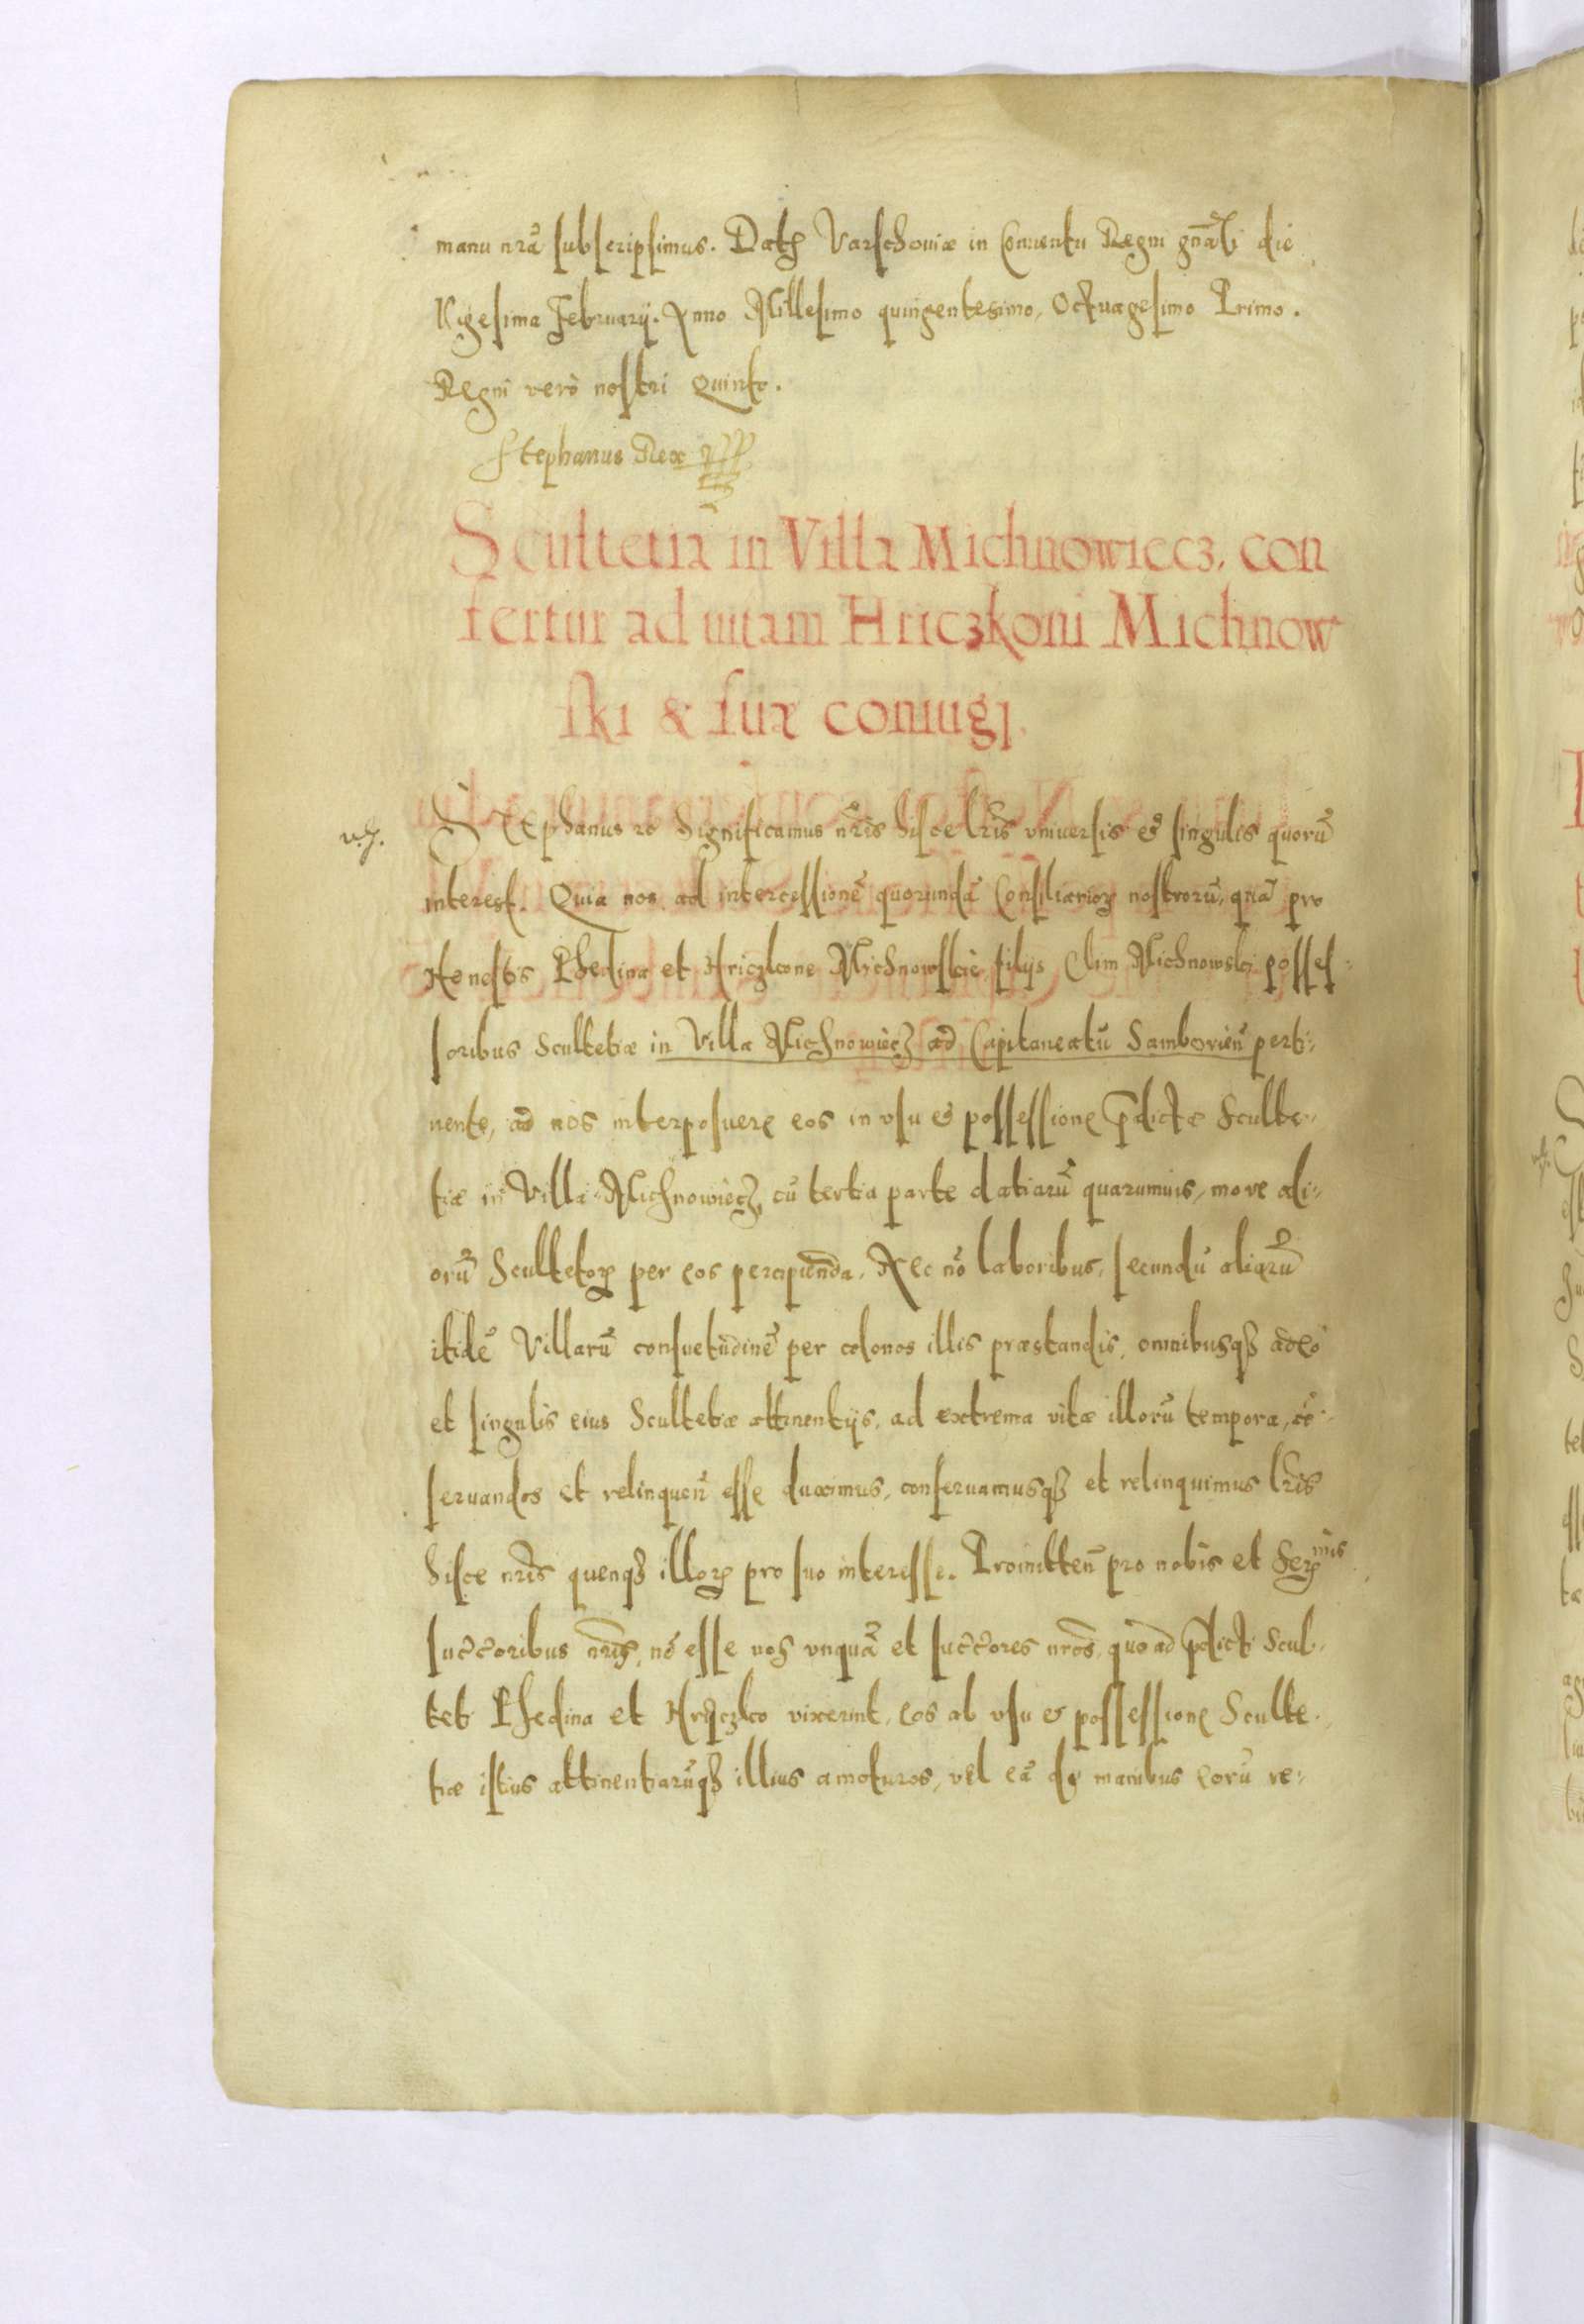 manu nrã subscripsimus. Datę Varschouiæ in Conuentu Regni gñali die
Vigesima February. Anno Millesimo quingentesimo, Octuagesimo Primo.
Regni verò nostri Quinto.
Stephanus Rex
Scultetia in Villa Michnowiecz, con
fertur ad uitam Hriczkoni Michnow
ski & suæ coniugj.
Stephanus rc Significamus nr̃is hisce lr̃is vniuersis et singulis quorũ
interest. Quia nos ad intercessionẽ quorundã Consiliarioꝝ nostrorũ, quã pro
Honestis Phedina et Hriczkone Michnowskie filijs Clim Michnowski posses-
soribus Scultetiæ in Villa Michnowiecz ad Capitaneatũ Samborieñ perti-
nente, ad nos interposuerę eos in vsu et possessionę p̃dictæ Sculte-
tiæ in Villa Michnowiecz, cũ tertia parte datiarũ quarumuis, more ali-
orũ Scultetoꝝ per eos percipienda, Nec nõ laboribus, secundũ aliarũ
itidẽ Villarũ consuetudinẽ per colonos illis præstandis, omnibusqꝫ adeò
et singulis eius Scultetiæ attinentijs, ad extrema vitæ illorũ tempora, cõ-
seruandos et relinqueñ esse duximus, conseruamusqꝫ et relinquimus lr̃is
hisce nr̃is quenqꝫ illoꝝ pro suo interesse. Promitteñ pro nobis et Serꝫmis
succ̃oribus nr̃is, nõ esse nos vnquã et succ̃ores nr̃os, quo ad p̃dicti Scul-
teti Phedina et Hryczko vixerint, eos ab vsu et possessionę Sculte-
tiæ istius attinentiarũqꝫ illius amoturos, vel eã de manibus eorũ re-